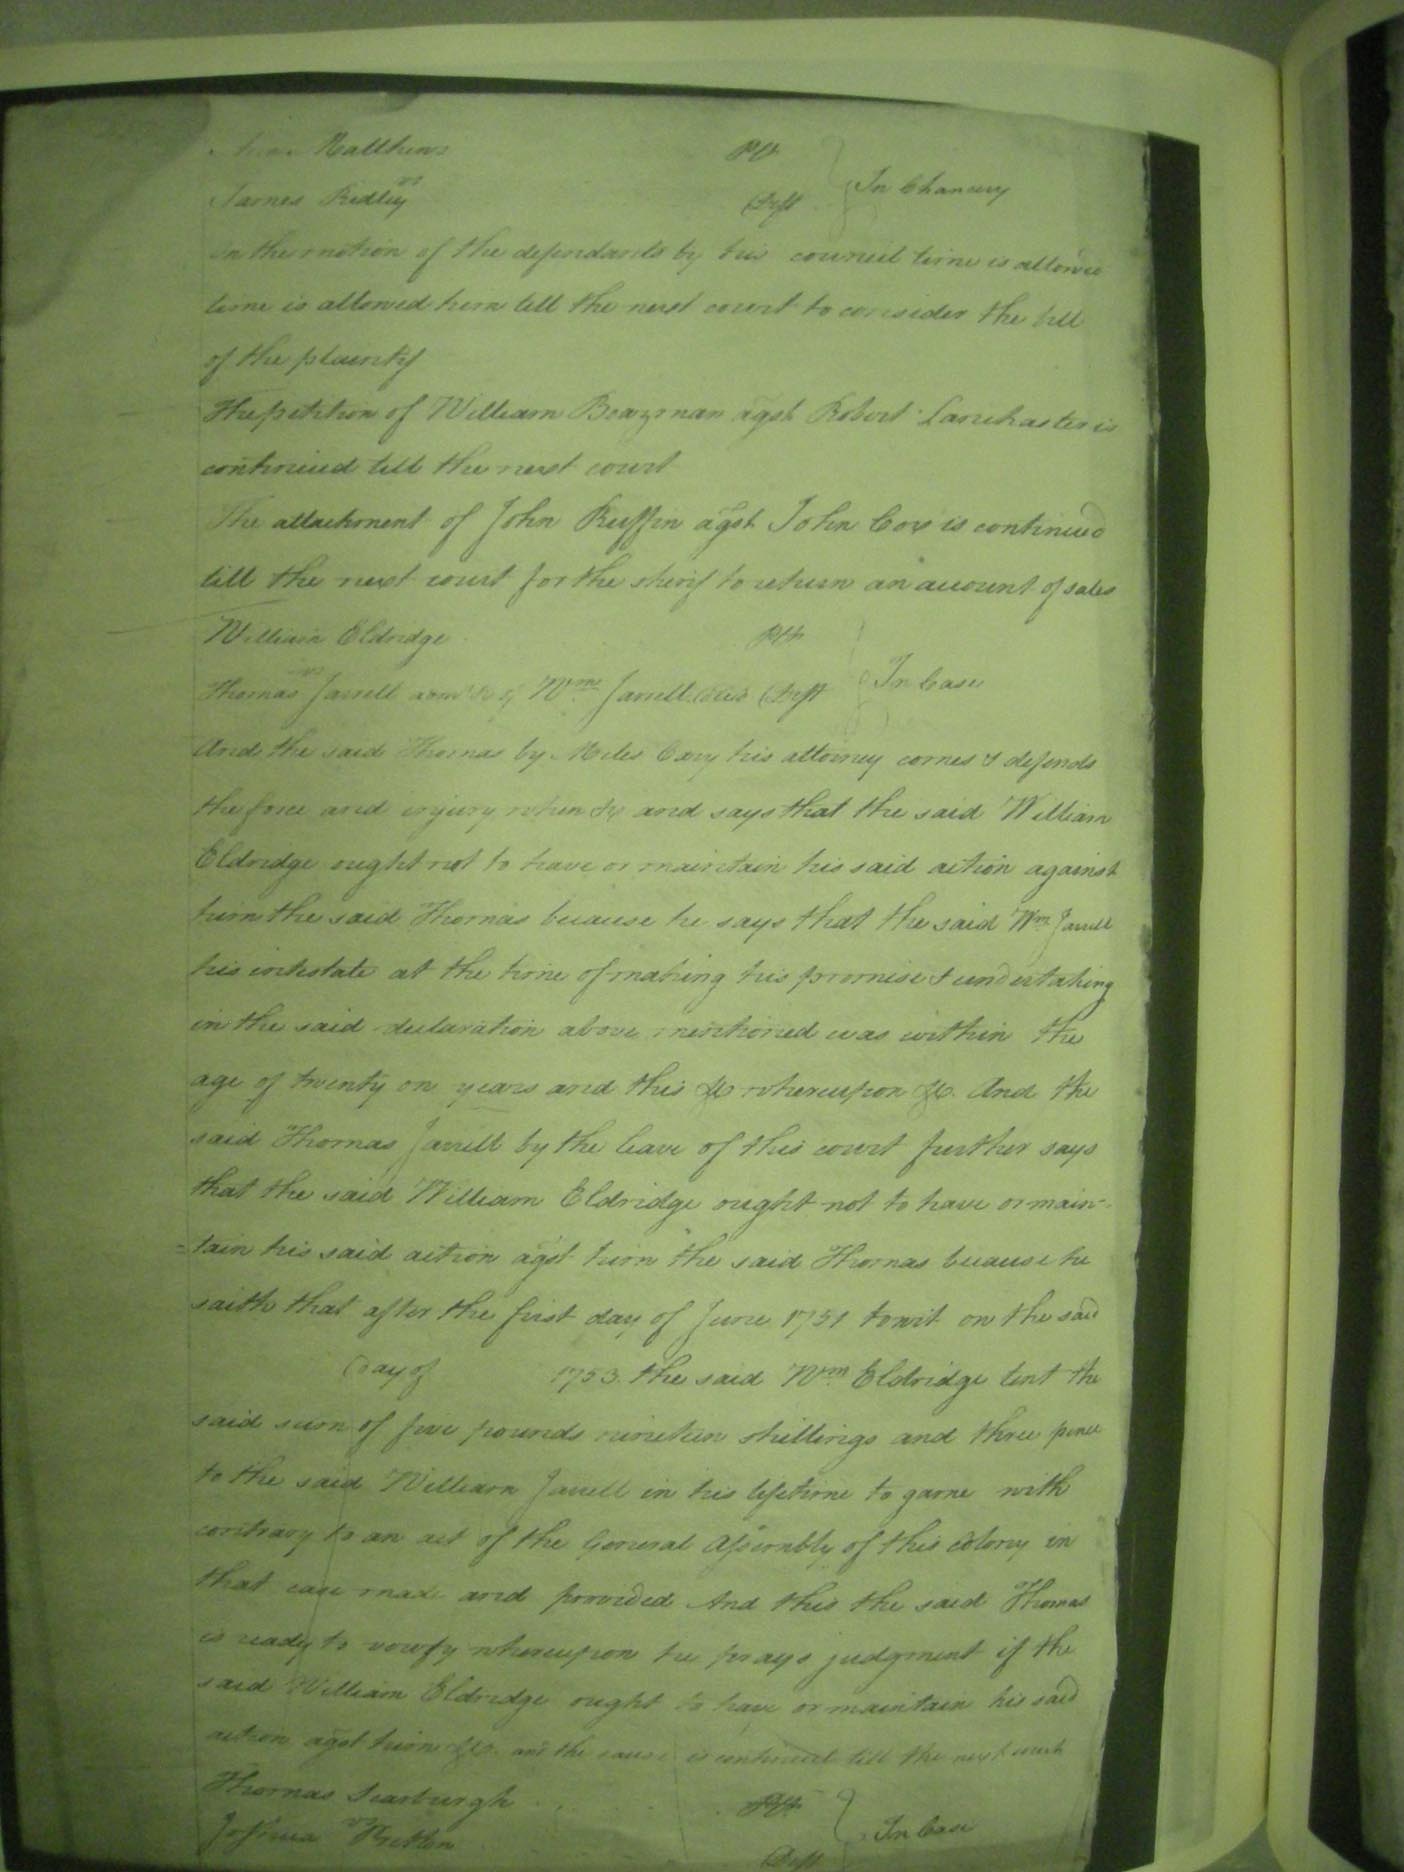 Matthews Plt
vs
James Ridley Deft In Chancery
On the motion of the defendants by his council time is allowed
time is allowed him till the next court to consider the bill
of the plaintif
The petition of William Boazman agst Robert Lanchaster is
continued till the next court
The attachment of John Ruffin agst John Cox is continued
till the next court for the sherif to return an account of sales
William Eldridge Plt
vs
Thomas Jarrell admr &c of Wm Jarrell decd Deft In Case
And the said Thomas by Miles Cary his attorney comes & defends
the force and injury when &c and says that the said William
Eldridge ought not to have or maintain his said action against
him the said Thomas because he says that the said Wm Jarrell
his intestate at the time of making his promise & undertaking
in the said declaration above mentioned was within the
age of twenty on years and this &c whereupon &c. And the
said Thomas Jarrell by the leave of this court further says
that the said William Eldridge ought not to have or main-
=tain his said action agst him the said Thomas because he
saith that after the first day of June 1751 towit on the said
Day of 1753. the said Wm Eldridge lent the
said sum of five pounds nineteen shillings and three pence
to the said William Jarrell in his lifetime to game with
contrary to an act of the General Assembly of this Colony in
that case made and provided And this the said Thomas
is ready to verify whereupon he prays judgment if the
said William Eldridge ought to have or maintain his said
action agst him &c. and the cause is continued till the next court
Thomas Scarburgh Plt
vs In Case
Joshua Deft